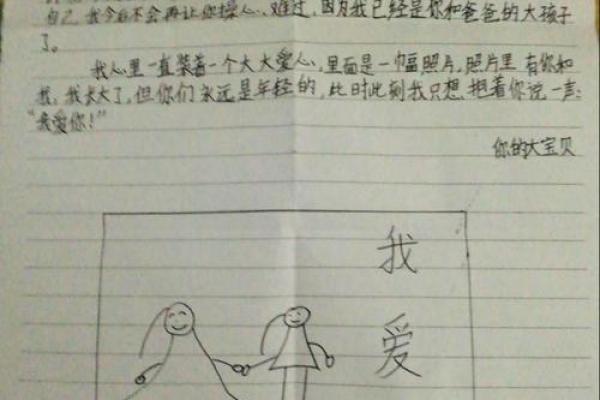 自己,我今后不会再让你操心、难过,因为我已经是你和爸爸的大孩子
了。
我心里一直装着一个大大爱心,里面是一巾福照片,照片里有你和
我,我长大了,但你们永远是年轻的,此时此刻我只想抱着你说一声:
“我爱你!”
你的大宝贝
我
爱